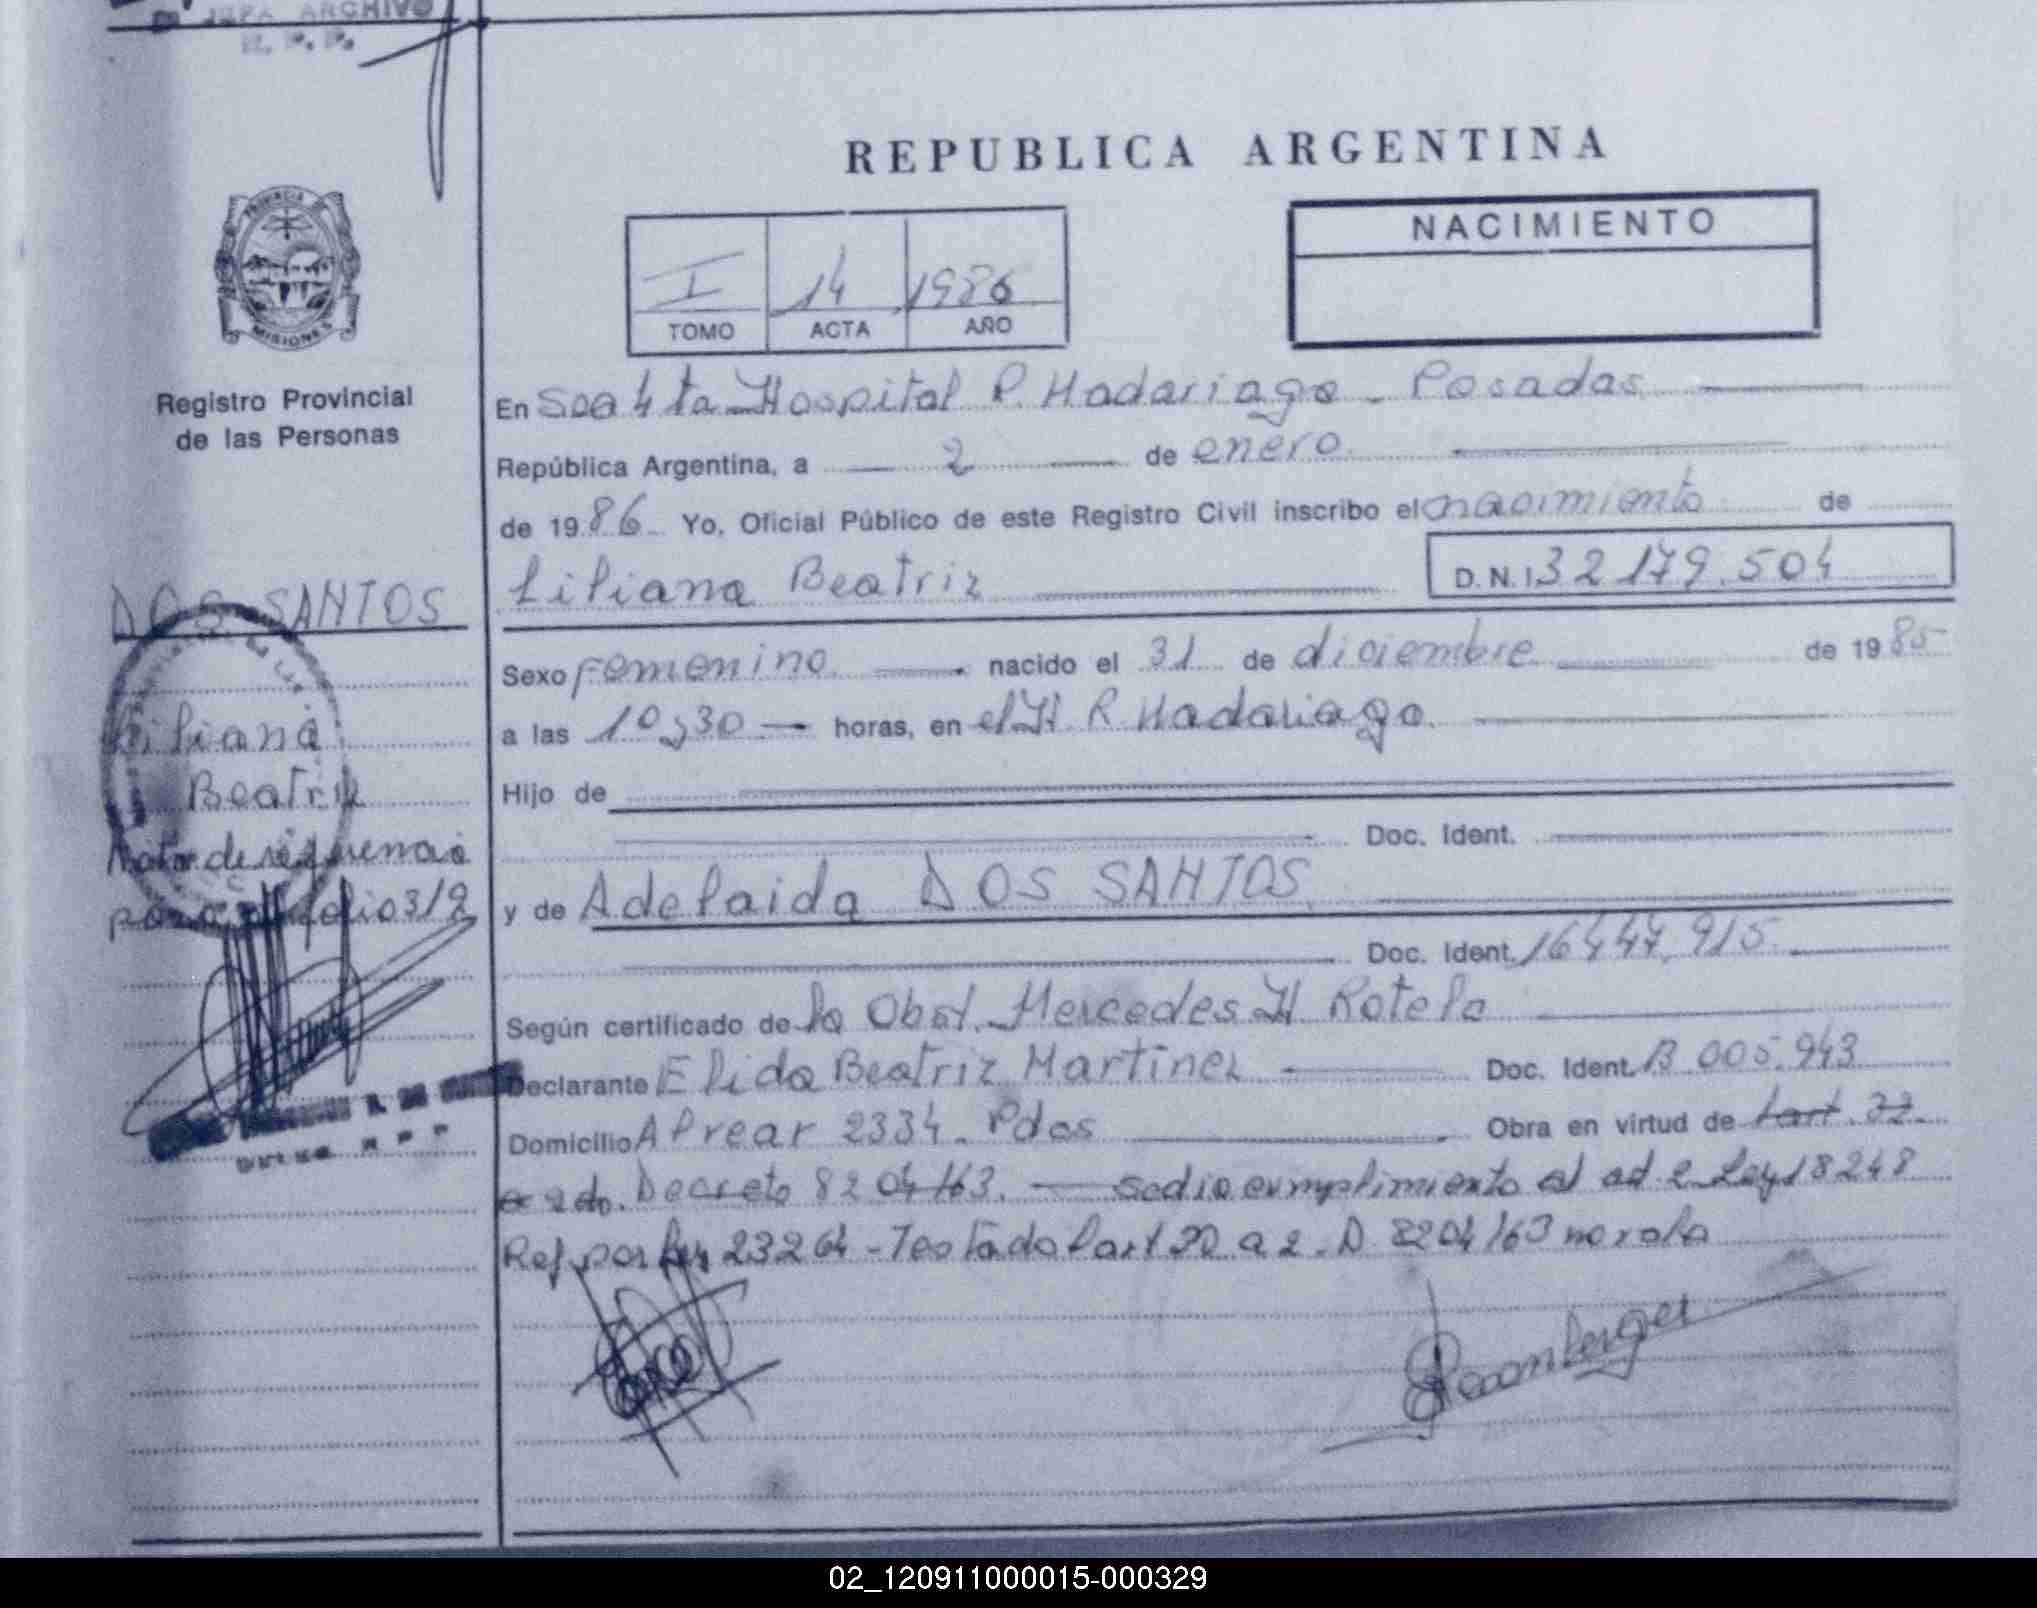 JEFA ARCHIVO
R. P. P.
REPUBLICA ARGENTINA
PROVINCIA
MISIONES
Registro Provincial
de las Personas
I 14 1986
TOMO ACTA AÑO
NACIMIENTO
En Sec 4ta Hospital R. Madariaga - Posadas
República Argentina, a 2 de enero
de 1986 Yo, Oficial Público de este Registro Civil inscribo el nacimiento de
Liliana Beatriz D.N.I 32179.504
Sexo Femenino nacido el 31 de diciembre de 1985
a las 10,30 horas, en el H R Madariaga
Hijo de
Doc. Ident.
y de Adelaida DOS SANTOS
Doc. Ident. 16447.915
Según certificado de la Obst. Mercedes H Rotela
Declarante Elida Beatriz Martinez Doc. Ident. B 005.943
Domicilio Alvear 2334 - Pdas Obra en virtud de l'art. 22
a 2 do. Decreto 8204/63. se dio cumplimiento al art 2 Ley 18248
Ref por Ley 23264 - Testado l'art 20 a 2. D 8204/63 no vale
DOS SANTOS
Liliana
Beatriz
Nota de referencia
para folio 312